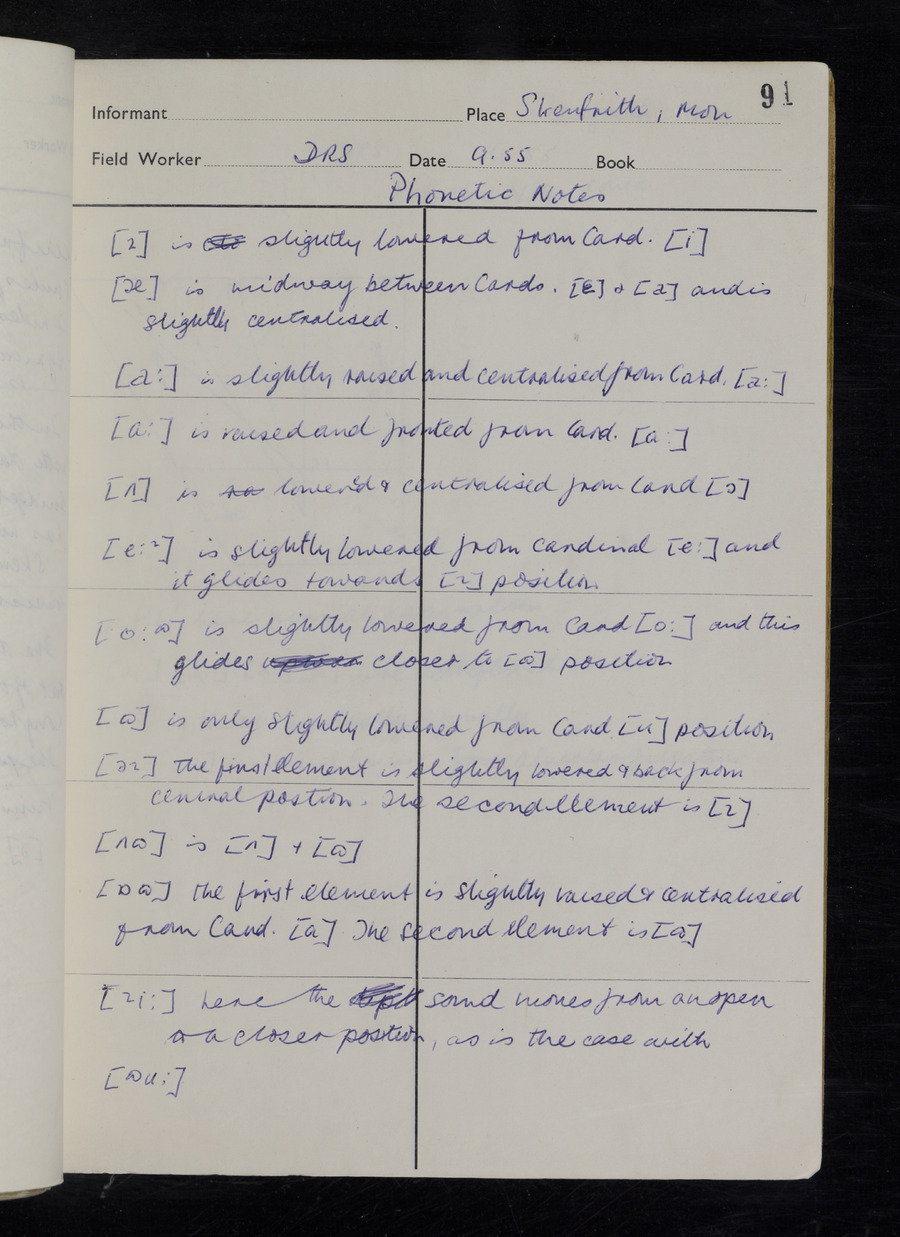 91
Informant Place Skenfrith, Mon
Field Worker DRS Date 9.55 Book
Phonetic Notes
[ɪ] is slightly lowered from Card. [i]
[æ] is midway between Cards. [ɛ] & [a] and is
slightly centralised.
[a:] is slightly raised and centralised from Card. [a:]
[ɑ:] is raised and fronted from Card. [ɑ:]
[ʌ] is lowered & centralised from Card [ɔ]
[e:ɪ] is slightly lowered from cardinal [e:] and
it glides towards [ɪ] position
[o:ɷ] is slightly lowered from Card [o:] and this
glides closer to [ɷ] position
[ɷ] is only slightly lowered from Card. [u] position
[əɪ] The first element is slightly lowered & back from
central postion. The second element is [ɪ]
[ʌɷ] is [ʌ] + [ɷ]
[ɒɷ] The first element is slightly raised & centralised
from Card. [ɑ]. The second element is [ɷ]
[ɪi:] here the sound moves from an open
to a closer position, as is the case with
[ɷu:]